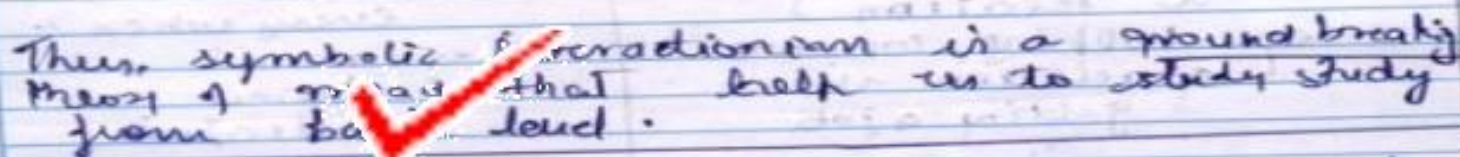 Thus, symbolic interactionism is a ground breaking
theory of that help us to study study
from level.